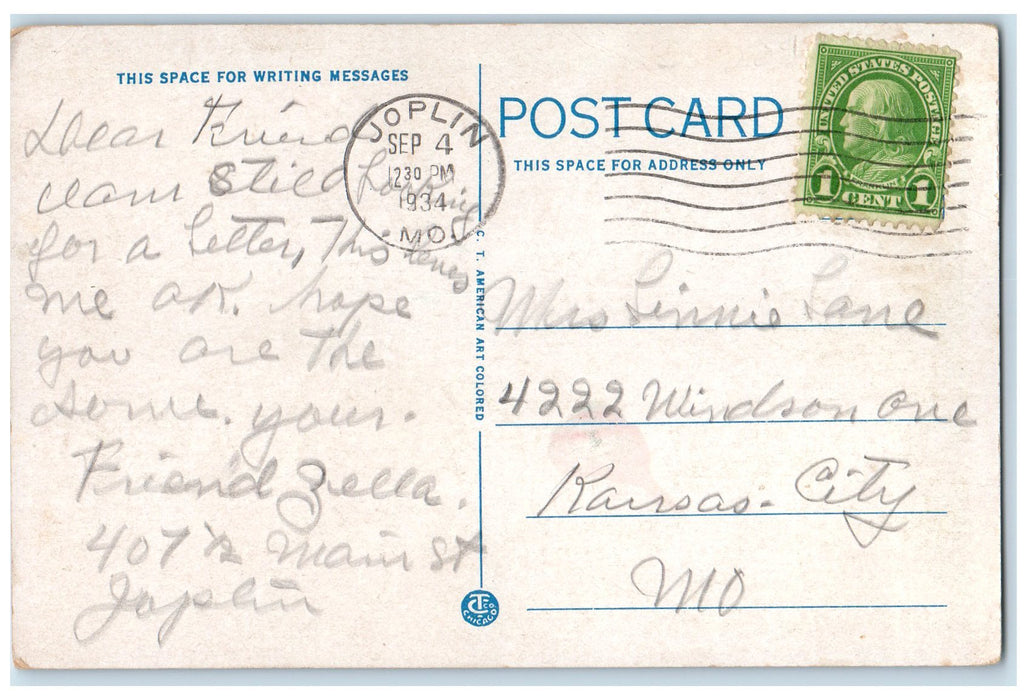 THIS SPACE FOR WRITING MESSAGES
Dear Friend
I am Still Looking
for a Letter, This leaves
me OK. hope
you are the
Same. your.
Friend Zella.
407½ Main St
Joplin
JOPLIN
SEP 4
1230 PM
1934
MO.
C. T. AMERICAN ART COLORED
CHICAGO
POST CARD
THIS SPACE FOR ADDRESS ONLY
UNITED STATES POSTAGE
FRANKLIN
1 CENT 1
Mrs Linnie Lane
4222 Windsor Ave
Kansas City
MO